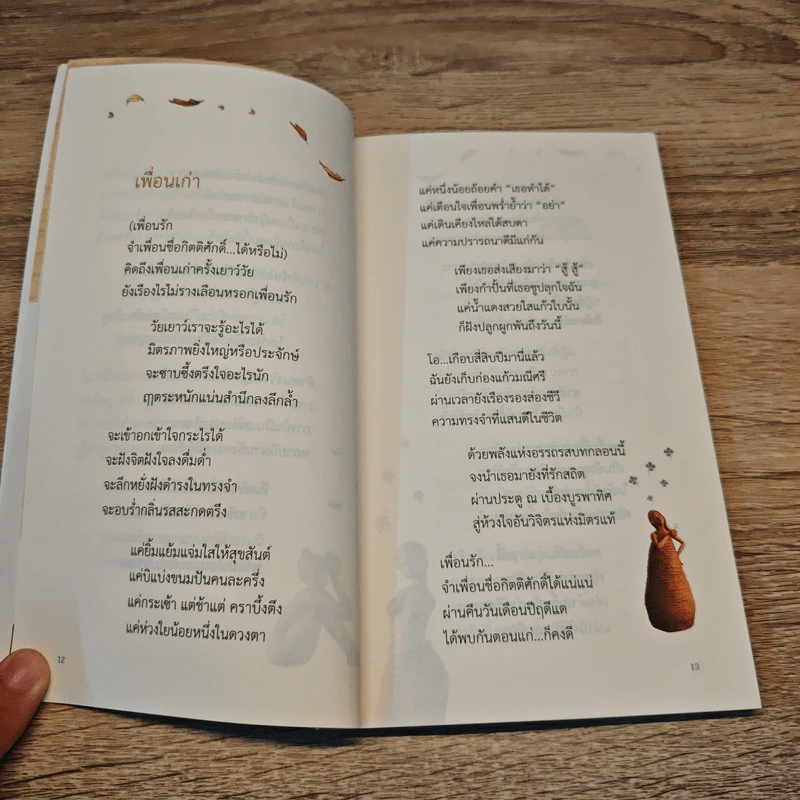 เพื่อนเก่า
(เพื่อนรัก
จำเพื่อนชื่อกิตติศักดิ์...ได้หรือไม่)
คิดถึงเพื่อนเก่าครั้งเยาว์วัย
ยังเรืองไรไม่รางเลือนหรอกเพื่อนรัก
วัยเยาว์เราจะรู้อะไรได้
มิตรภาพยิ่งใหญ่หรือประจักษ์
จะซาบซึ้งตรึงใจอะไรนัก
ฤๅตระหนักแน่นสำนึกลงลึกล้ำ
จะเข้าอกเข้าใจกระไรได้
จะฝังจิตฝังใจลงดื่มด่ำ
จะลึกหยั่งฝังดำรงในทรงจำ
จะอบร่ำกลิ่นรสสะกดตรึง
แค่ยิ้มแย้มแจ่มใสให้สุขสันต์
แค่บิแบ่งขนมปันคนละครึ่ง
แค่กระเซ้า แต่ช้าแต่ คราบึ้งตึง
แค่ห่วงใยน้อยหนึ่งในดวงตา
12
แค่หนึ่งน้อยถ้อยคำ “เธอทำได้”
แค่เตือนใจเพื่อนพร่ำย้ำว่า “อย่า”
แค่เดินเคียงไหล่ได้สบตา
แค่ความปรารถนาดีมีแก่กัน
เพียงเธอส่งเสียงมาว่า “สู้ สู้”
เพียงกำปั้นที่เธอชูปลุกใจฉัน
แค่น้ำแดงสวยใสแก้วใบนั้น
ก็ฝังปลูกผูกพันถึงวันนี้
โอ...เกือบสี่สิบปีมานี่แล้ว
ฉันยังเก็บก่องแก้วมณีศรี
ผ่านเวลายังเรืองรองส่องชีวี
ความทรงจำที่แสนดีในชีวิต
ด้วยพลังแห่งอรรถรสบทกลอนนี้
จงนำเธอมายังที่รักสถิต
ผ่านประตู ณ เบื้องบูรพาทิศ
สู่ห้วงใจอันวิจิตรแห่งมิตรแท้
เพื่อนรัก...
จำเพื่อนชื่อกิตติศักดิ์ได้แน่แน่
ผ่านคืนวันเดือนปีฤดีแด
ได้พบกันตอนแก่...ก็คงดี
13